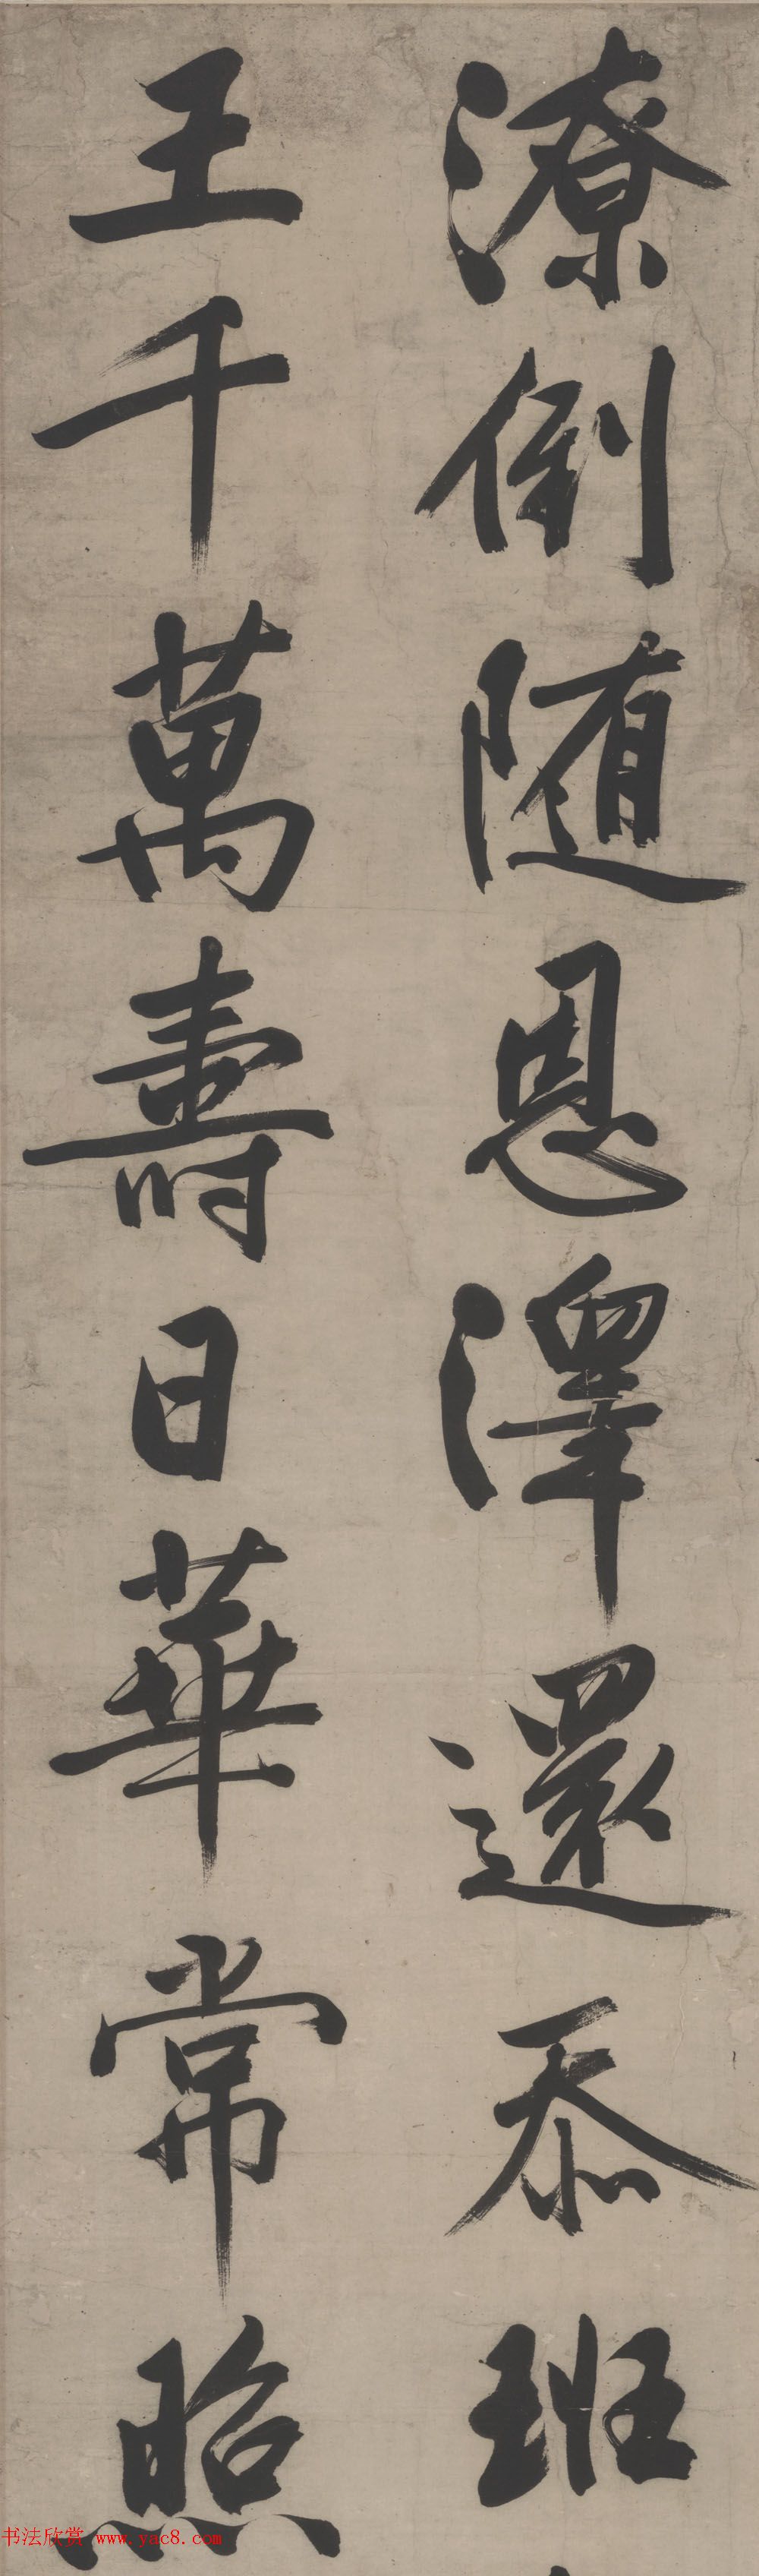 潦倒随恩澤還忝班
王千萬壽日華常照
书法欣赏 www.yac8.com